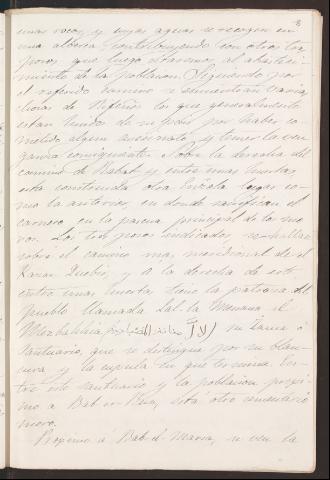 8
unas rocas, y cuyas aguas se recogen en
una alberca, contribuyendo con otros tres
pozos que luego diremos, al abasteci-
miento de la poblacion. Siguiendo por
el referido camino se encuentran varias
de Rifeños los que generalmente
estan huidos de su pais por haber co-
metido algun asesinato, y temer la ven-
ganza consiguiente. Sobre la derecha del
camino de Rabat y entre unas huertas
esta construida otra lugar co-
mo la anterior, en donde sacrifican el
carnero en la pascua principal de los mo-
ros. Los tres pozos indicados, se hallan
sobre el camino mas meridional de el
y á la derecha de este
entre unas huertas, tiene la patrona del
pueblo llamada Lal-la Menana el
Mesbahia (لالة منانة المصباحية) su Zauia ó
Santuario, que se distingue por su blan-
cura y la cupula en que termina. En-
tre este santuario y la poblacion, proxi-
mo á Bab está otro cementerio
moro.
Proximo á Bab-el- se ven la